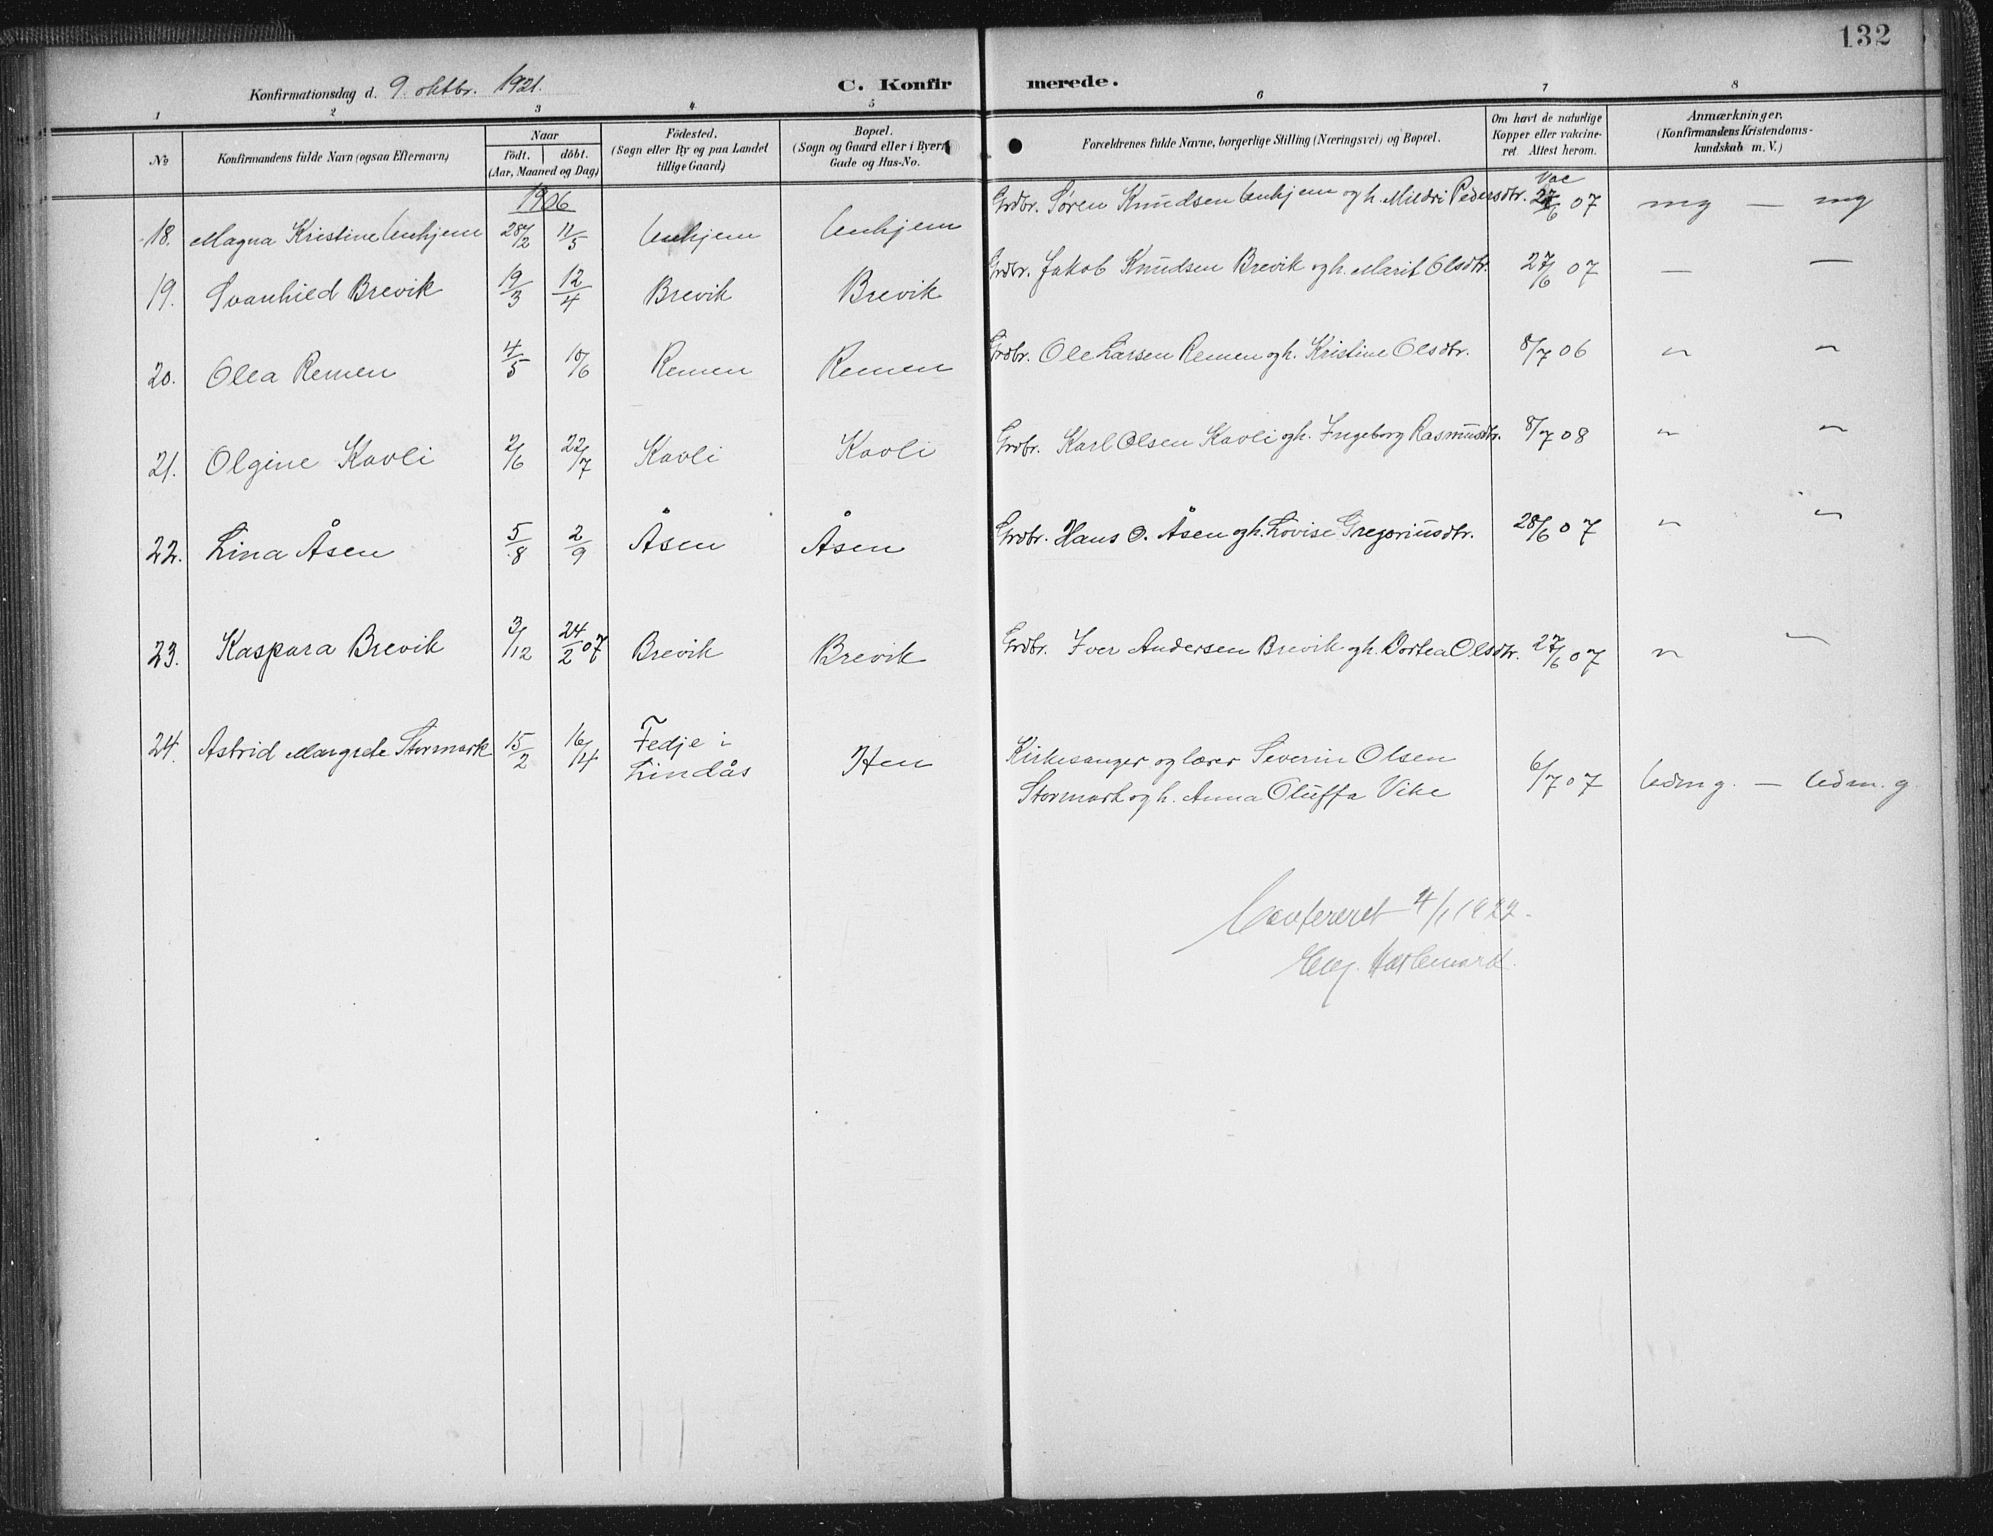 132
Konfirmationsdag d. 9. oktbr. 1921.
C. Konfirmerede.
1 2 3 4 5 6 7 8
No
Konfirmandens fulde Navn (ogsaa Efternavn)
Naar
födt. döbt.
(Aar, Maaned og Dag)
Födested.
(Sogn eller By og paa Landet
tillige Gaard)
Bopæl.
(Sogn og Gaard eller i Byern
Gade og Hus-No.
Forældrenes fulde Navne, borgerlige Stilling (Næringsvei) og Bopæl.
Om havt de naturlige
Kopper eller vakcine-
ret. Attest herom.
Anmærkninger.
(Konfirmandens Kristendoms-
kundskab m. V.)
1906
Vac
18. Magna Kristine Unhjem 28/2 11/5 Unhjem Unhjem Grdbr. Søren Knudsen Unhjem og h. Mildri Pedersdtr. 27/6 07 mg — mg
19. Svanhild Brevik 19/3 12/4 Brevik Brevik Grdbr. Jakob Knudsen Brevik og h. Marit Olsdtr. 27/6 07 — —
20. Olea Remen 4/5 10/6 Remen Remen Grdbr. Ole Larsen Remen og h. Kristine Olsdtr. 8/7 06 " "
21. Olgine Kavli 2/6 22/7 Kavli Kavli Grdbr. Karl Olsen Kavli og h. Ingeborg Rasmusdtr. 8/7 08 " "
22. Lina Åsen 5/8 2/9 Åsen Åsen Grdbr. Hans O. Åsen og h. Lovise Gregoriusdtr. 28/6 07 " "
23. Kaspara Brevik 3/12 24/2 07 Brevik Brevik Grdbr. Iver Andersen Brevik og h. Dortea Olsdtr. 27/6 07 " "
24. Astrid Margrete Stormark 15/2 16/4 Fedje i
Lindås Hen Kirkesanger og lærer Severin Olsen
Stormark og h. Anna Oluffa Vike 6/7 07 Udm g. — Udm. g.
Confereret 4/1 1922.